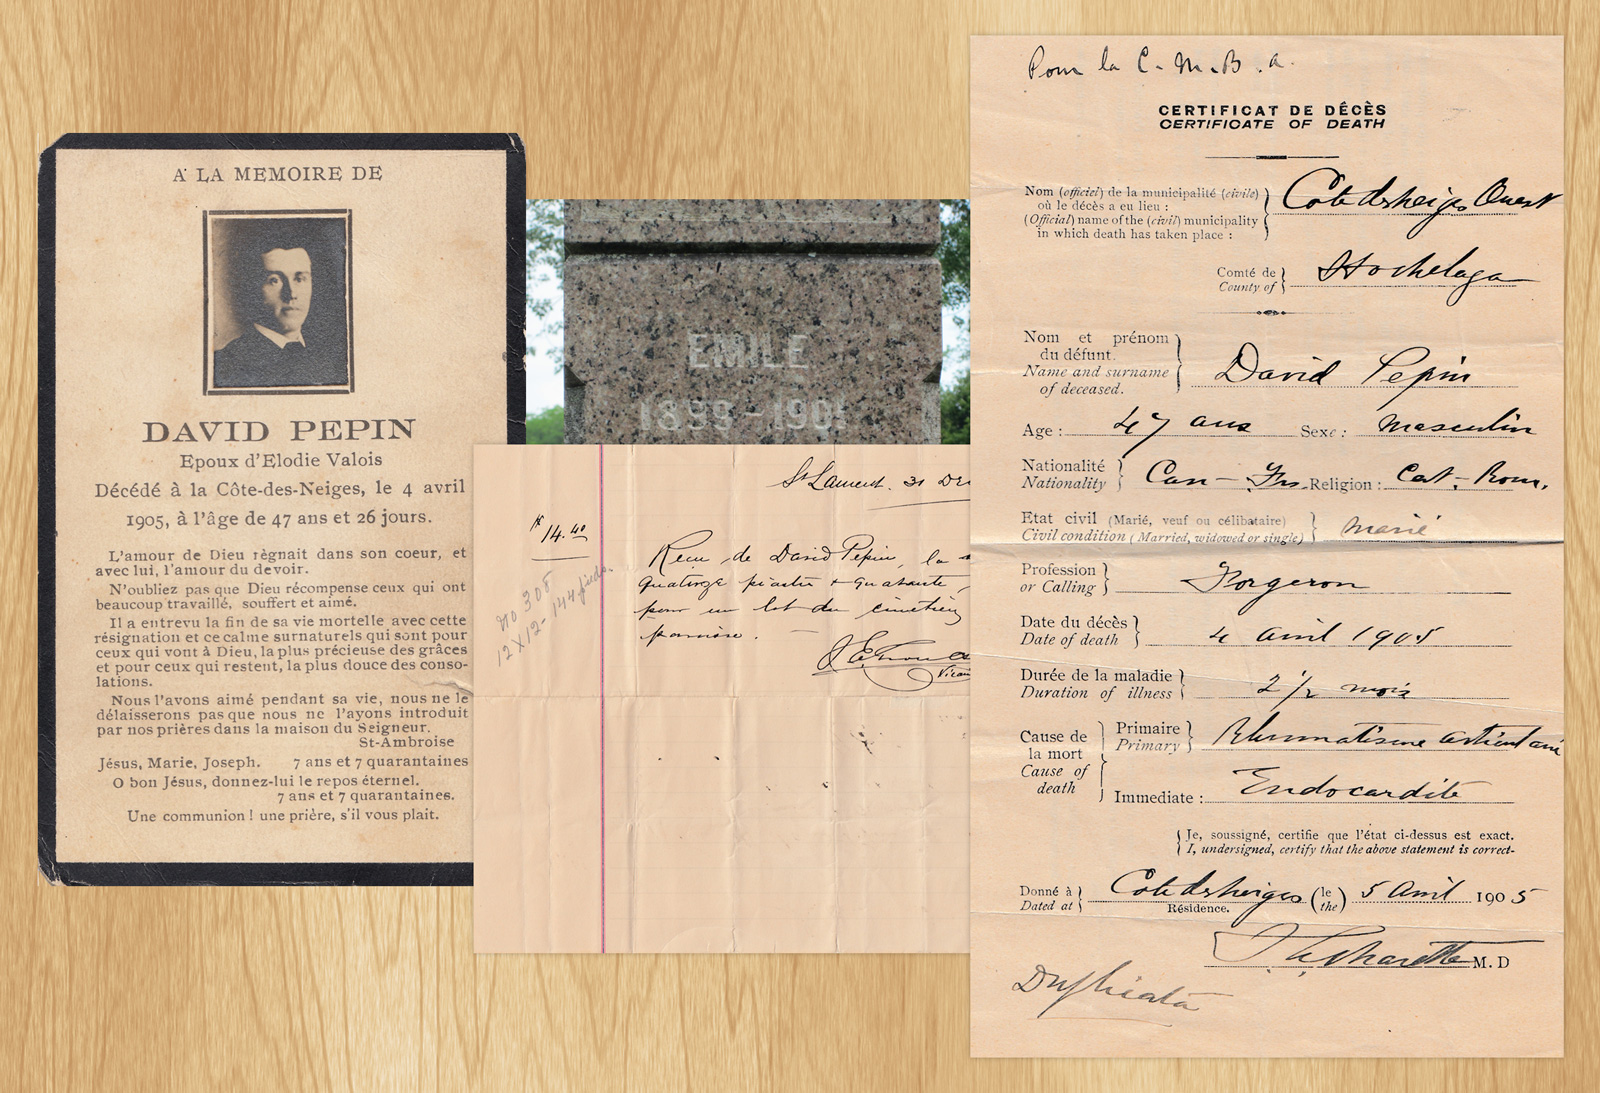 A LA MEMOIRE DE
DAVID PEPIN
Epoux d'Elodie Valois
Décédé à la Côte-des-Neiges, le 4 avril
1905, à l'âge de 47 ans et 26 jours.
L'amour de Dieu règnait dans son coeur, et
avec lui, l'amour du devoir.
N'oubliez pas que Dieu récompense ceux qui ont
beaucoup travaillé, souffert et aimé.
Il a entrevu la fin de sa vie mortelle avec cette
résignation et ce calme surnaturels qui sont pour
ceux qui vont à Dieu, la plus précieuse des grâces
et pour ceux qui restent, la plus douce des conso-
lations.
Nous l'avons aimé pendant sa vie, nous ne le
délaisserons pas que nous ne l'ayons introduit
par nos prières dans la maison du Seigneur.
St-Ambroise
Jésus, Marie, Joseph. 7 ans et 7 quarantaines
O bon Jésus, donnez-lui le repos éternel.
7 ans et 7 quarantaines.
Une communion ! une prière, s'il vous plait.
EMILE
1899-1901
St Laurent. 31 Dec
14.40
No 308
12 X 12 - 144 pieds.
Recu de David Pepin, la
quatorze piastre + quarante
pour un lot du cimetière
paroisse.
Vicaire
Pour la C. M. B. A.
CERTIFICAT DE DÉCÈS
CERTIFICATE OF DEATH
Nom (officiel) de la municipalité (civile)
où le décès a eu lieu :
(Official) name of the (civil) municipality
in which death has taken place :
Cote des neiges Ouest
Comté de
County of
Hochelaga
Nom et prénom
du défunt.
Name and surname
of deceased.
David Pepin
Age : 47 ans Sexe : Masculin
Nationalité
Nationality
Can - Frs Religion : Cat. Rom.
Etat civil (Marié, veuf ou célibataire)
Civil condition (Married, widowed or single)
marié
Profession
or Calling
Forgeron
Date du décès
Date of death
4 avril 1905
Durée de la maladie
Duration of illness
2 1/2 mois
Cause de
la mort
Cause of
death
Primaire
Primary
Rhumatisme articulaire
Immediate : Endocardite
Je, soussigné, certifie que l'état ci-dessus est exact.
I, undersigned, certify that the above statement is correct-
Donné à
Dated at
Cote des neiges (le
the) 5 Avril 1905
Résidence.
M. D
Duplicata